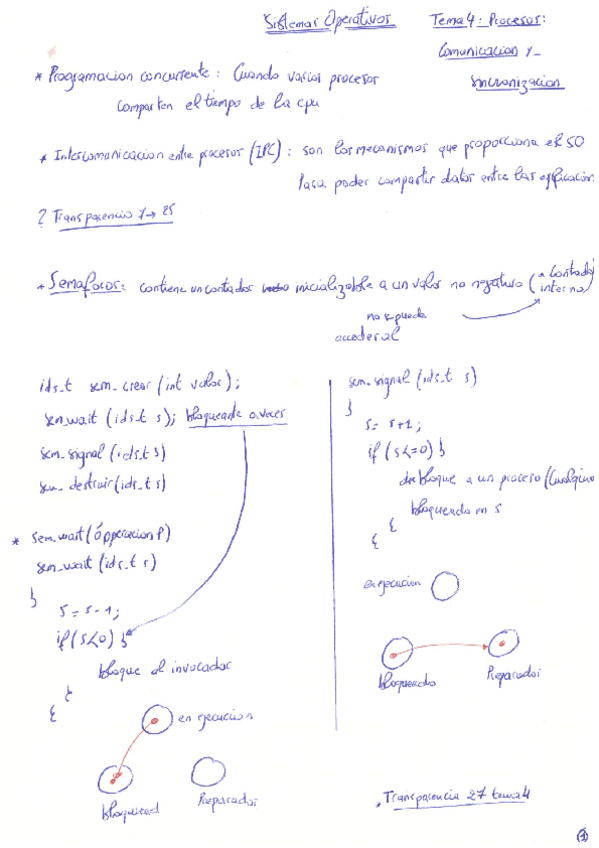 Sistemas Operativos Tema 4: Procesos:
Comunicacion y
sincronizacion
* Programacion concurrente: Cuando varios procesos
comparten el tiempo de la cpu
* Intercomunicacion entre procesos (IPC): son los mecanismos que proporciona el SO
para poder compartir datos entre las aplicacion
? Transparencia 7→25
* Semaforos: contiene un contador inicializable a un valor no negativo (* Contador
interno)
no se puede
acceder al
ids_t sem_crear (int valor);
sem_wait (ids_t s); bloqueante a veces
sem_signal (ids_t s)
sem_destruir (ids_t s)
* Sem_wait (ó operacion P)
sem_wait (ids_t s)
}
s = s-1;
if (s<0) }
bloque al invocador
{
{
en ejecucion
bloquead
Preparados
sem_signal (ids_t s)
}
s = s+1;
if (s<=0) }
desbloque a un proceso (Cualquie
bloqueado en s
{
{
en ejecucion
bloqueado
Preparados
Transparencia 27 tema 4
1